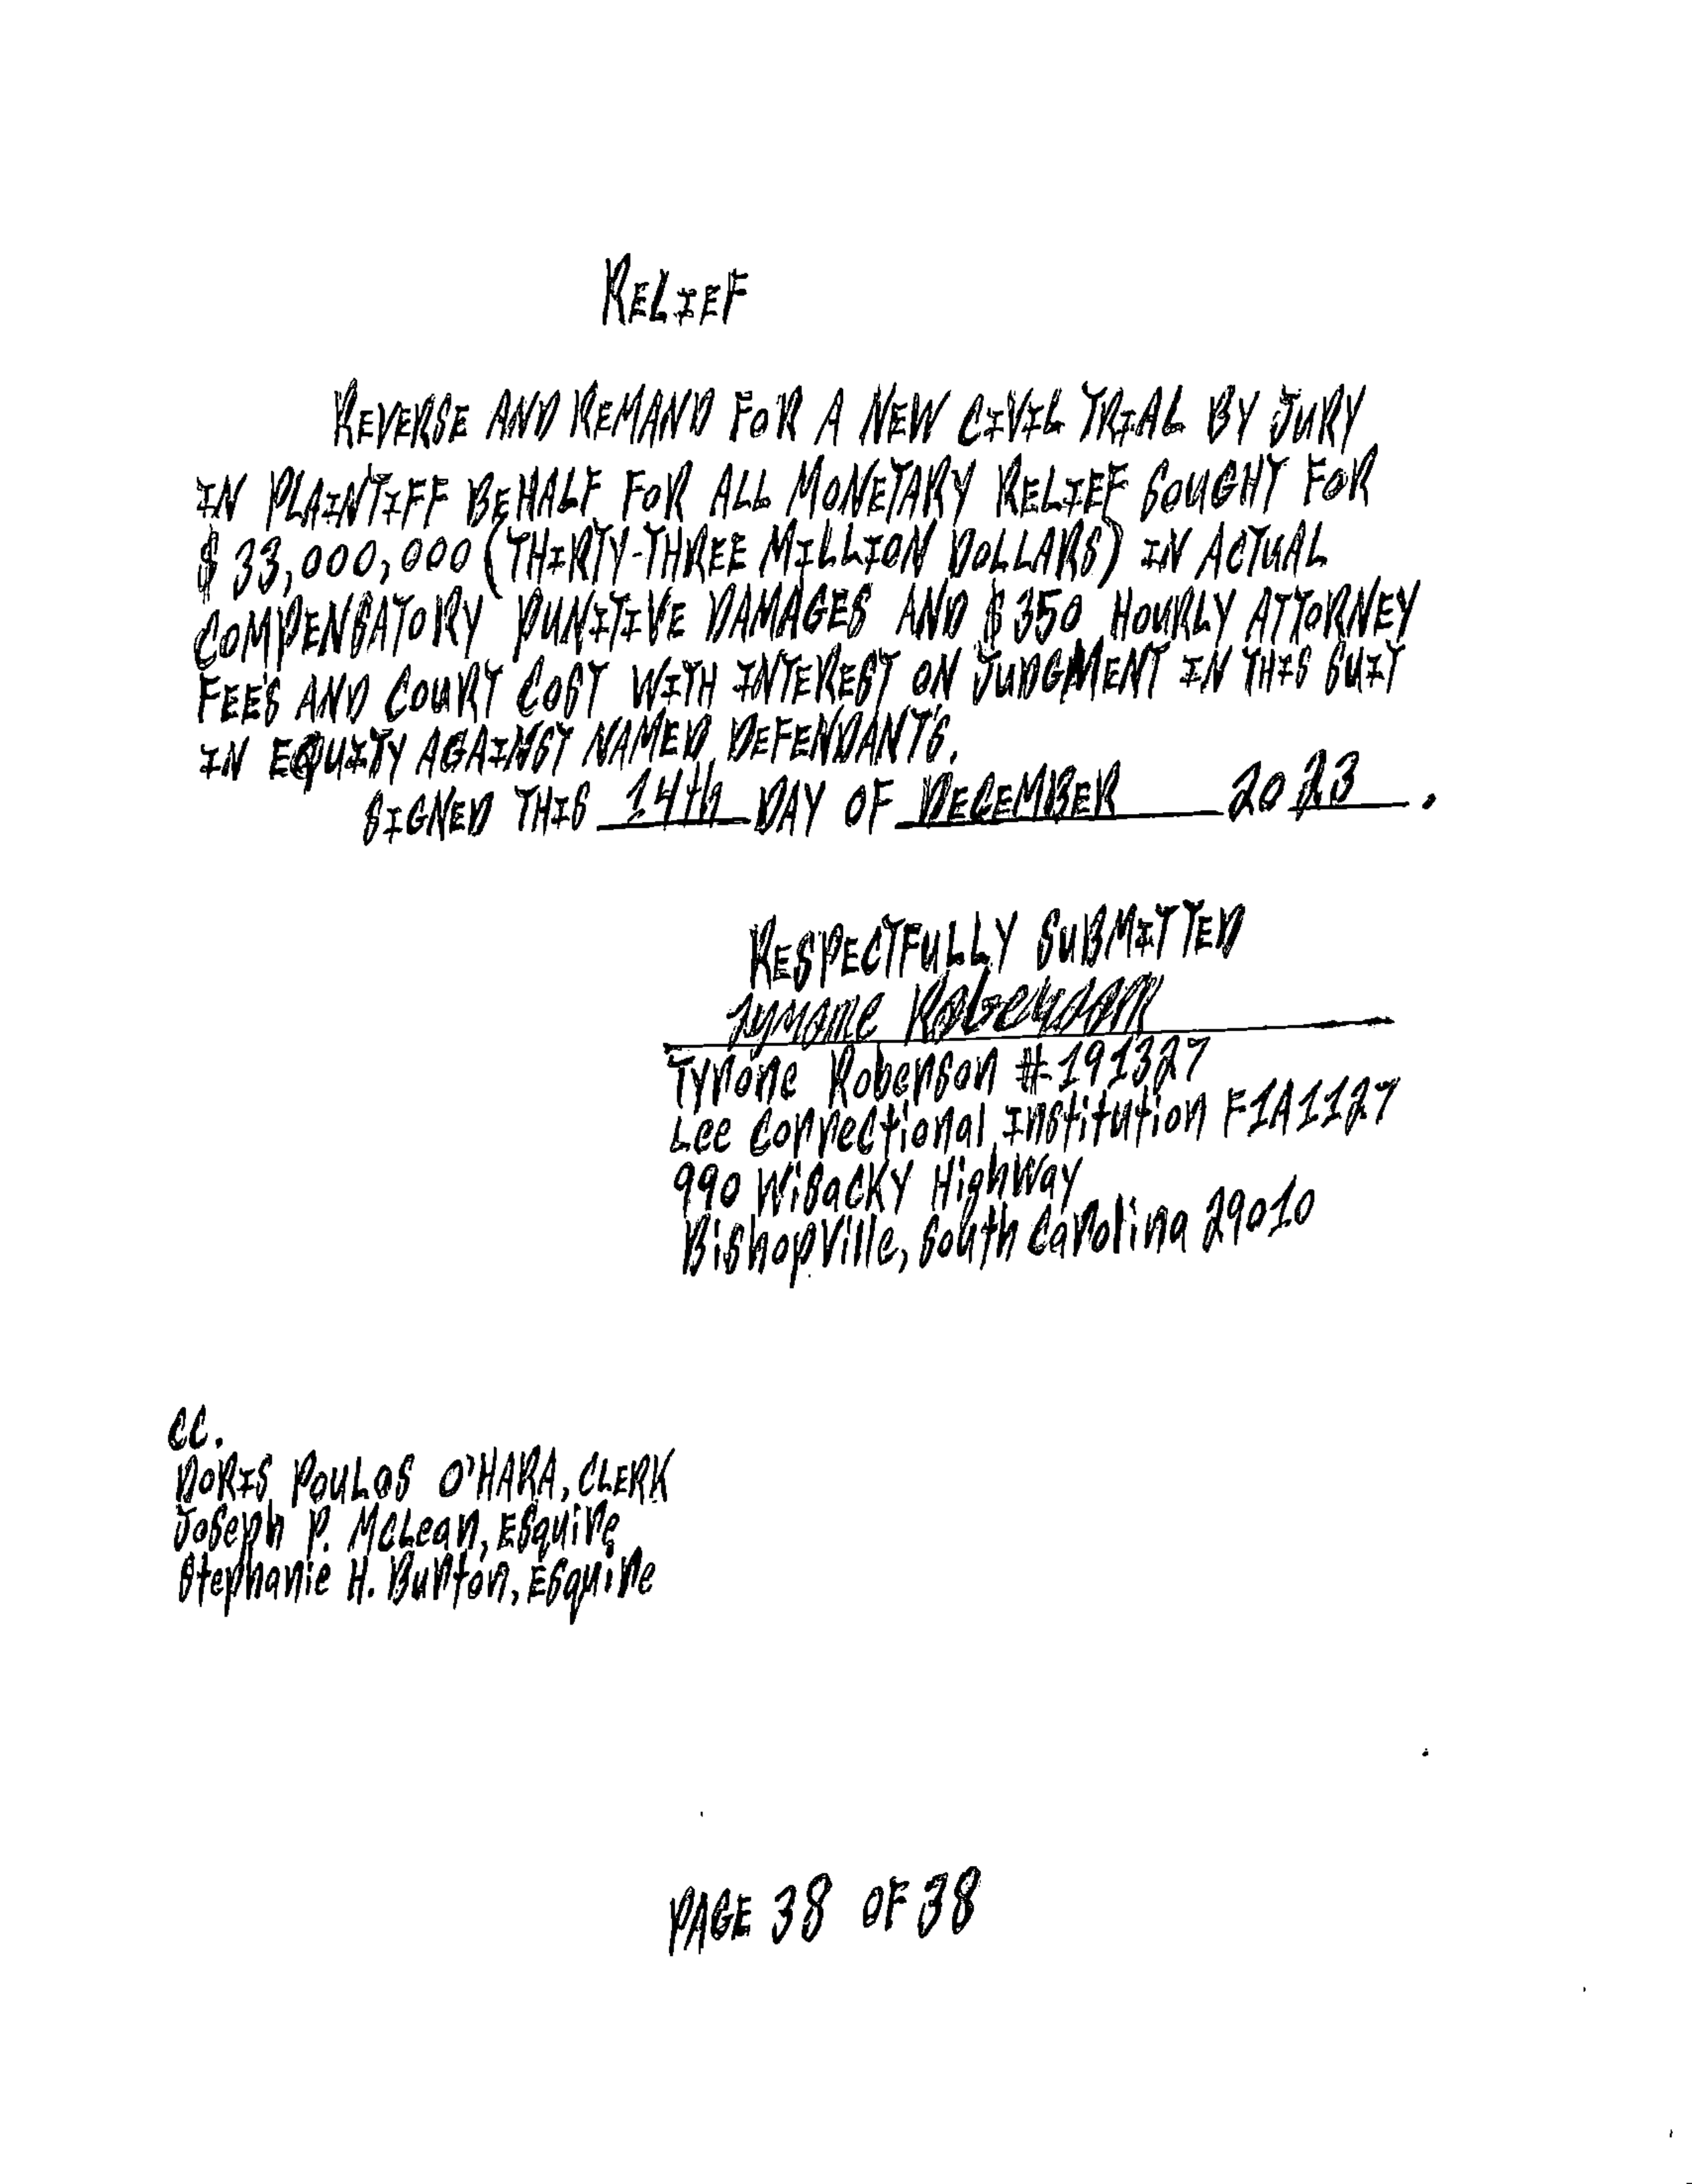 RELIEF
REVERSE AND REMAND FOR A NEW CIVIL TRIAL BY JURY
IN PLAINTIFF BEHALF FOR ALL MONETARY RELIEF SOUGHT FOR
$33,000,000 (THIRTY-THREE MILLION DOLLARS) IN ACTUAL
COMPENSATORY PUNITIVE DAMAGES AND $350 HOURLY ATTORNEY
FEE'S AND COURT COST WITH INTEREST ON JUDGMENT IN THIS SUIT
IN EQUITY AGAINST NAMED DEFENDANT'S.
SIGNED THIS 14th DAY OF DECEMBER 2023.
RESPECTFULLY SUBMITTED
Tyrone Roberson
Tyrone Roberson #191327
Lee Correctional Institution F1A1127
990 Wisacky Highway
Bishopville, South Carolina 29010
CC.
DORIS POULOS O'HARA, CLERK
Joseph P. McLean, Esquire
Stephanie H. Burton, Esquire
PAGE 38 OF 38